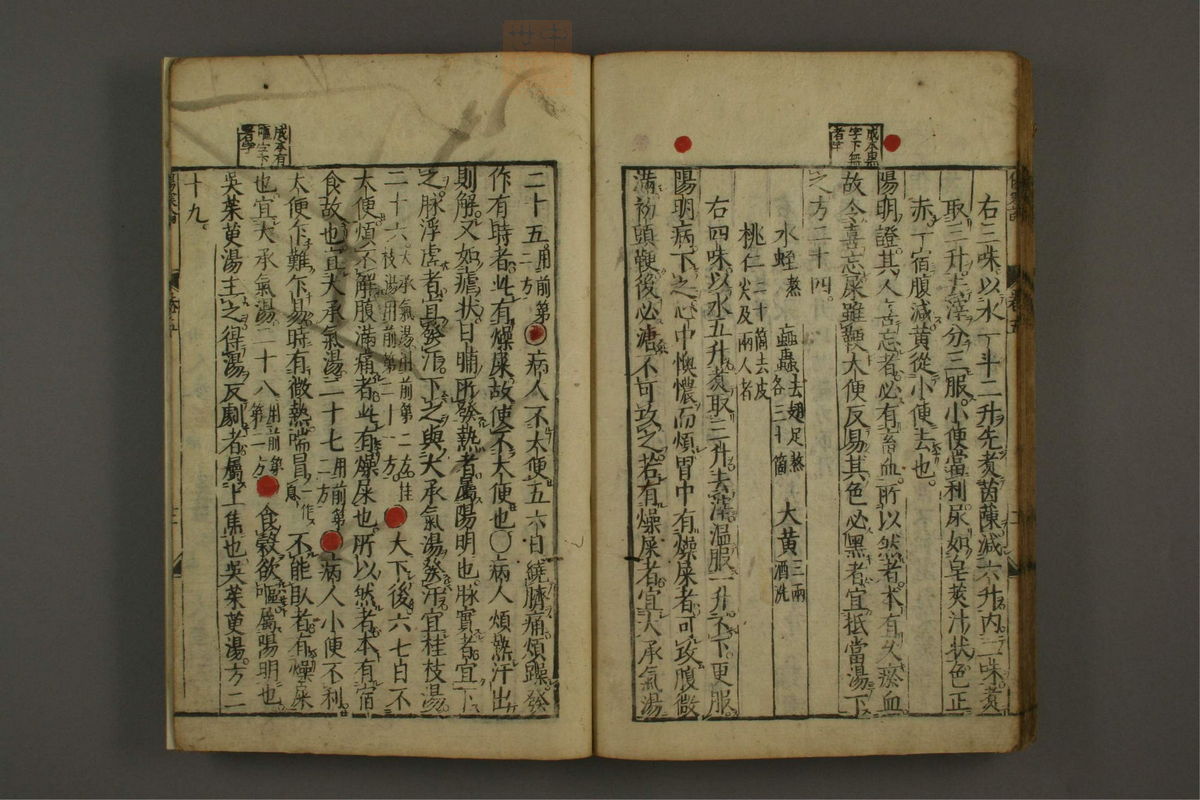 成本無
字下無
者字
右三味以水一斗二升先煮茵蔯減六升内二味煮
取三升去滓分三服小便當利尿如皂莢汁状色正
赤一宿腹減黄從小便去也
陽明證其人喜忘者必有畜血所以然者本有久瘀血
故令喜忘屎雖鞕大便反易其色必黒者宜抵當湯下
之方二十四
水蛭熬 蝱蟲去翅足熬各三十箇 大黄三兩酒洗
桃仁二十箇去皮尖及兩人者
右四味以水五升煮取三升去滓温服一升不下更服
陽明病下之心中懊憹而煩胃中有燥屎者可攻腹微
滿初頭鞕後必溏不可攻之若有燥屎者宜大承氣湯
成本有
嘔字下
者字
二十五用前第二方 病人不大便五六日繞臍痛煩躁發
作有時者此有燥屎故使不大便也○病人煩熱汗出
則解又如瘧状日晡所發熱者屬陽明也脉實者宜下
之脉浮虚者宜發汗下之與大承氣湯發汗宜桂枝湯
二十六大承氣湯用前第二方桂枝湯用前第二十一方 大下後六七日不
大便煩不解腹滿痛者此有燥屎也所以然者本有宿
食故也宜大承氣湯二十七用前第二方 病人小便不利
大便乍難乍易時有微熱喘冒一作息不能臥者有燥屎
也宜大承氣湯二十八用前第二方 食穀欲嘔屬陽明也
呉茱萸湯主之得湯反劇者屬上焦也呉茱萸湯方二
十九
傷寒論 卷五